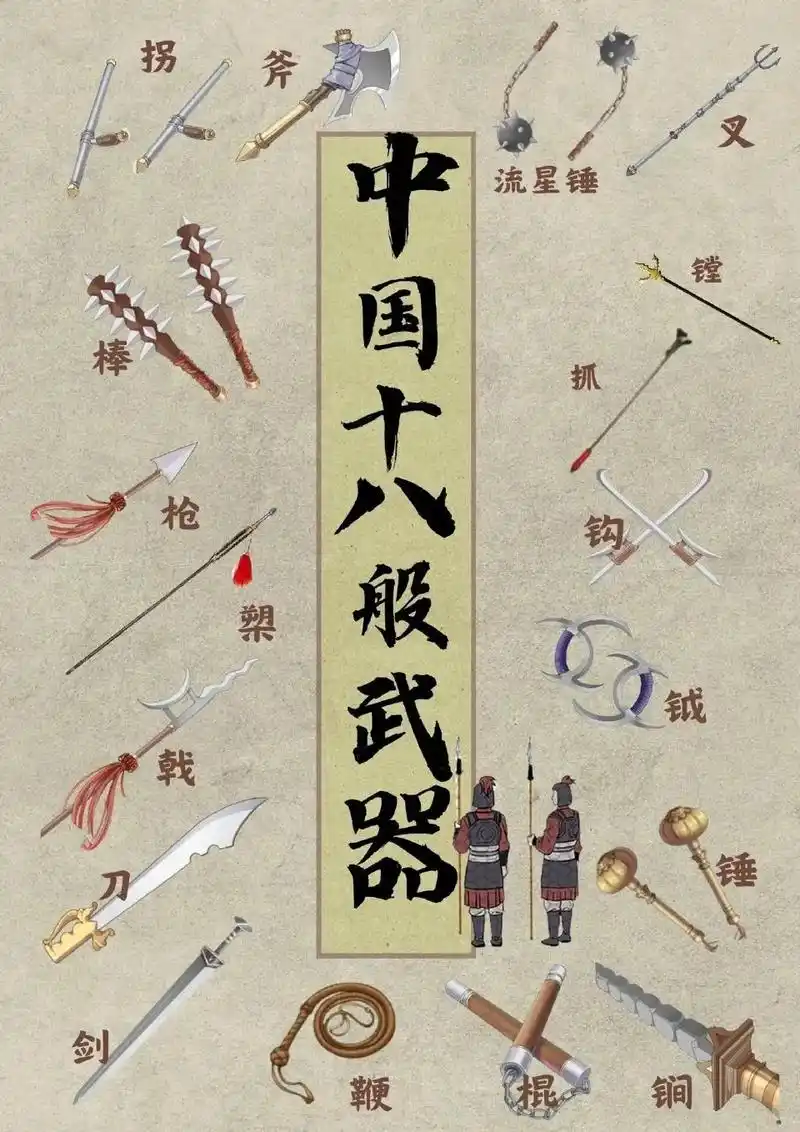 中国十八般武器
拐
斧
流星锤
叉
棒
镗
抓
枪
钩
槊
钺
戟
刀
锤
剑
鞭
棍
锏